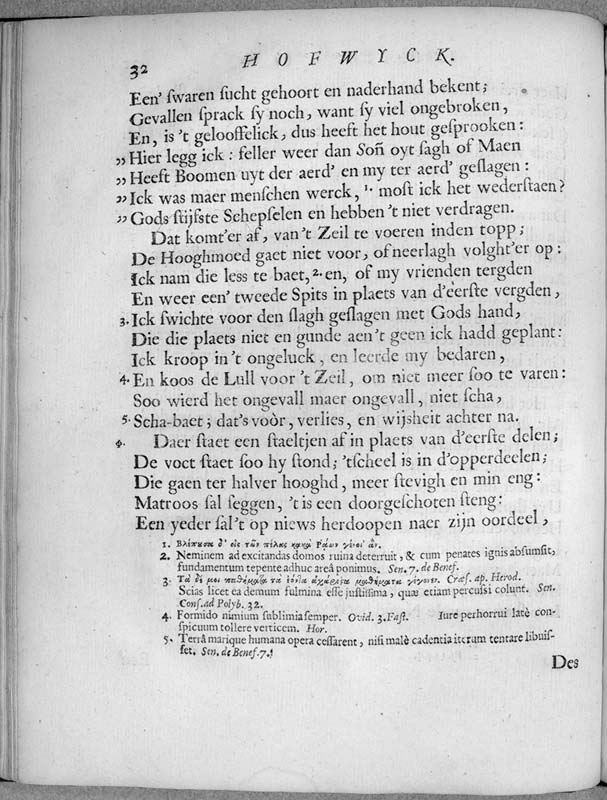 32
HOFWYCK.
Een' ſwaren ſucht gehoort en naderhand bekent;
Gevallen ſprack ſy noch, want ſy viel ongebroken,
En, is 't gelooffelick, dus heeft het hout geſprooken:
„ Hier legg ick: feller weer dan Soñ oyt ſagh of Maen
„ Heeft Boomen uyt der aerd' en my ter aerd' geſlagen:
„ Ick was maer menſchen werck, 1. moſt ick het wederſtaen?
„ Gods ſtijfſte Schepſelen en hebben 't niet verdragen.
Dat komt'er af, van 't Zeil te voeren inden topp;
De Hooghmoed gaet niet voor, of neerlagh volght'er op:
Ick nam die less te baet, 2. en, of my vrienden tergden
En weer een' tweede Spits in plaets van d'eerſte vergden,
3. Ick ſwichte voor den ſlagh geſlagen met Gods hand,
Die die plaets niet en gunde aen 't geen ick hadd geplant:
Ick kroop in 't ongeluck, en leerde my bedaren,
4. En koos de Lull voor 't Zeil, om niet meer ſoo te varen:
Soo wierd het ongevall maer ongevall, niet ſcha,
5. Scha-baet; dat's voòr, verlies, en wijsheit achter na.
6. Daer ſtaet een ſtaeltjen af in plaets van d'eerſte delen;
De voet ſtaet ſoo hy ſtond; 'tſcheel is in d'opperdeelen;
Die gaen ter halver hooghd, meer ſtevigh en min eng:
Matroos ſal ſeggen, 't is een doorgeſchoten ſteng:
Een yeder ſal't op niews herdoopen naer zijn oordeel,
1. δ' εἰς τῶν πέλας κακὰ Ῥάων γένοι' ἄν.
2. Neminem ad excitandas domos ruina deterruit, & cum penates ignis abſumſit,
fundamentum tepente adhuc areâ ponimus. Sen. 7. de Benef.
3. Τὰ δέ μοι παθήματα τὰ ἐόντα ἀχάριτα μαθήματα γέγονεν. Crœſ. ap. Herod.
Scias licet ea demum fulmina eſſe juſtiſſima, quæ etiam percuſſi colunt. Sen.
Conſ. ad Polyb. 32.
4. Formido nimium ſublimia ſemper. Ovid. 3. Faſt. Iure perhorrui latè con-
ſpicuum tollere verticem. Hor.
5. Terrâ marique humana opera ceſſarent, niſi malè cadentia iterum tentare libuiſ-
ſet. Sen. de Benef. 7.
Des